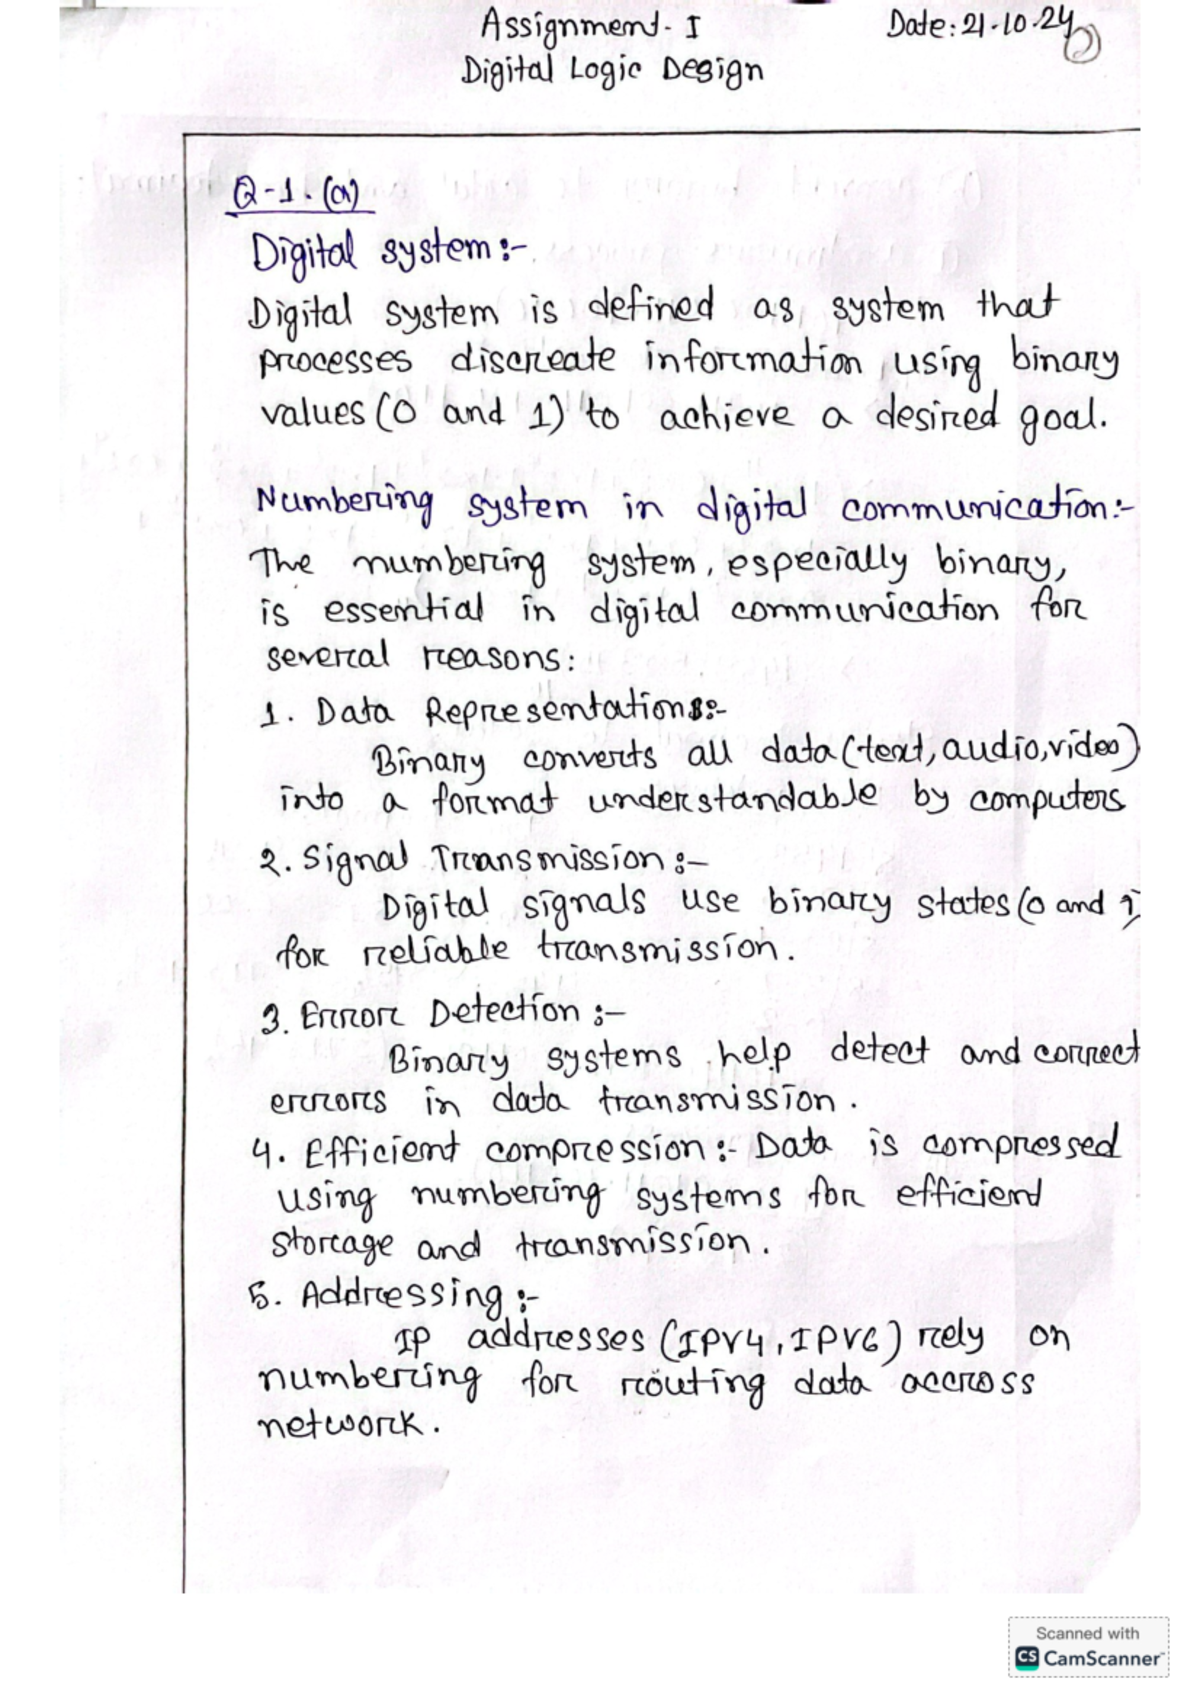 Assignment-I
Date: 21-10-24
Digital Logic Design
Q-1.(a)
Digital system:-
Digital system is defined as system that
processes discreate information using binary
values (0 and 1) to achieve a desired goal.
Numbering system in digital communication:-
The numbering system, especially binary,
is essential in digital communication for
several reasons:
1. Data Representations:-
Binary converts all data (text, audio, video)
into a format understandable by computers
2. Signal Transmission:-
Digital signals use binary states (0 and 1)
for reliable transmission.
3. Error Detection:-
Binary systems help detect and correct
errors in data transmission.
4. Efficient compression:- Data is compressed
using numbering systems for efficient
storage and transmission.
5. Addressing:-
IP addresses (IPV4, IPV6) rely on
numbering for routing data accross
network.
Scanned with
CS CamScanner